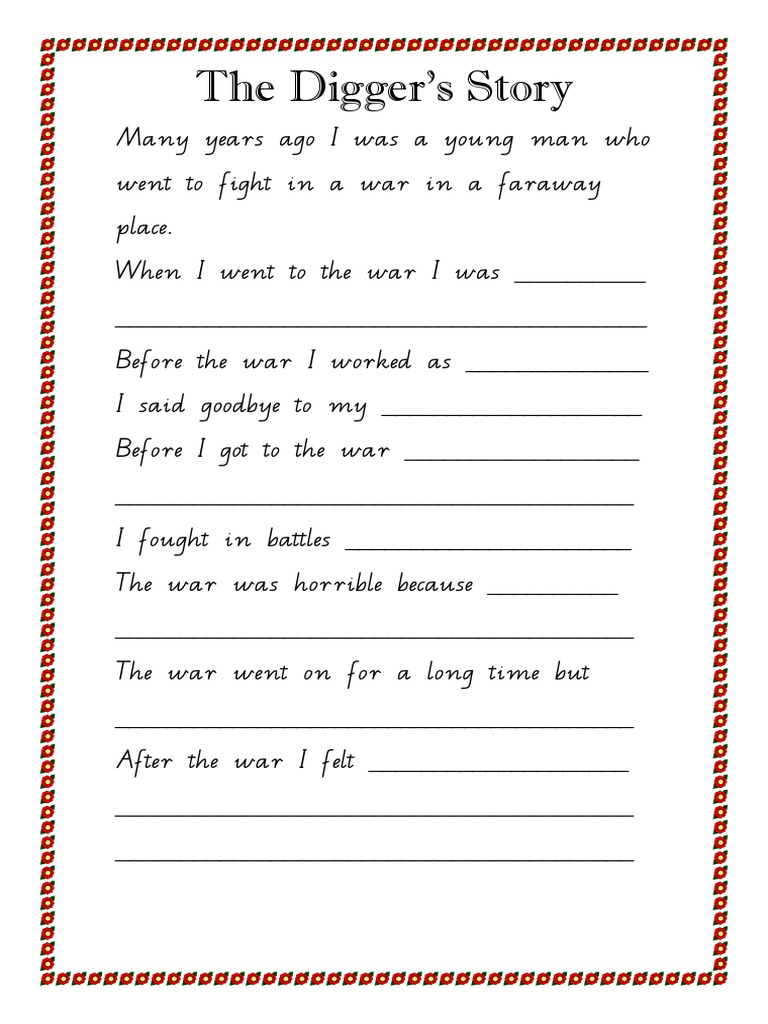 The Digger's Story
Many years ago I was a young man who
went to fight in a war in a faraway
place.
When I went to the war I was __________
________________________________________
Before the war I worked as ______________
I said goodbye to my ____________________
Before I got to the war __________________
_______________________________________
I fought in battles ______________________
The war was horrible because __________
_______________________________________
The war went on for a long time but
_______________________________________
After the war I felt ____________________
_______________________________________
_______________________________________